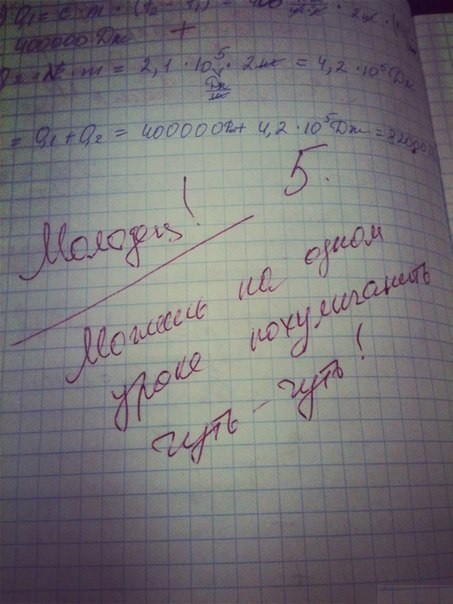 Q₁ = c · m · (t₂ - t₁) = 400
400000 Дж +
· m = 2,1 · 10⁵ · 2кг = 4,2 · 10⁵ Дж
Дж
кг
= Q₁ + Q₂ = 400000Дж + 4,2 · 10⁵ Дж = 8200
5.
Молодец!
Можешь на одном
уроке похулиганить
чуть - чуть!